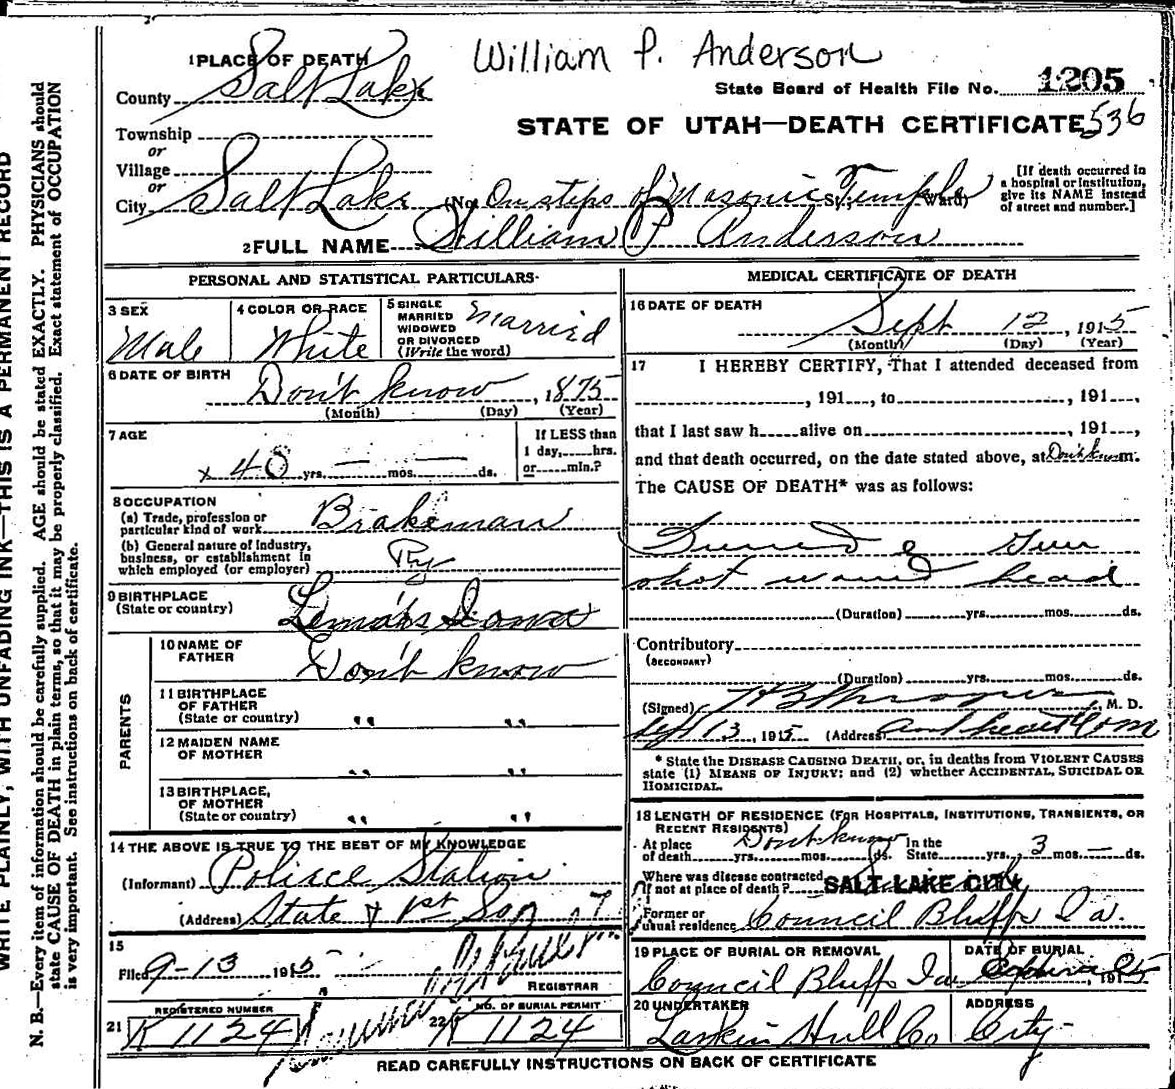 William P. Anderson
1 PLACE OF DEATH
County Salt Lake
State Board of Health File No. 1205
STATE OF UTAH—DEATH CERTIFICATE 536
Township
or
Village
or
City Salt Lake (No. On steps of Masonic Temple St.; Ward)
[If death occurred in a hospital or institution, give its NAME instead of street and number.]
2 FULL NAME William P Anderson
PERSONAL AND STATISTICAL PARTICULARS
3 SEX
Male
4 COLOR OR RACE
White
5 SINGLE
MARRIED
WIDOWED
OR DIVORCED
(Write the word)
Married
6 DATE OF BIRTH
Don't know, 1875
(Month) (Day) (Year)
7 AGE
x 40 yrs. — mos. — ds.
If LESS than
1 day, hrs.
or min.?
8 OCCUPATION
(a) Trade, profession or
particular kind of work Brakeman
(b) General nature of industry,
business, or establishment in
which employed (or employer) Ry
9 BIRTHPLACE
(State or country) Iowa
PARENTS
10 NAME OF
FATHER Don't know
11 BIRTHPLACE
OF FATHER
(State or country) " "
12 MAIDEN NAME
OF MOTHER " "
13 BIRTHPLACE,
OF MOTHER
(State or country) " "
14 THE ABOVE IS TRUE TO THE BEST OF MY KNOWLEDGE
(Informant) Station
(Address) State & 1st So
15
Filed 9-13 1915
REGISTRAR
REGISTERED NUMBER
21 K 1124
NO. OF BURIAL PERMIT
22 K 1124
MEDICAL CERTIFICATE OF DEATH
16 DATE OF DEATH
Sept 12, 1915
(Month) (Day) (Year)
17 I HEREBY CERTIFY, That I attended deceased from
, 191 , to , 191 ,
that I last saw h alive on , 191 ,
and that death occurred, on the date stated above, at Don't know m.
The CAUSE OF DEATH* was as follows:
Gun
shot wound head
(Duration) yrs. mos. ds.
Contributory
(SECONDARY)
(Duration) yrs. mos. ds.
(Signed) M. D.
Sept 13, 1915 (Address)
* State the DISEASE CAUSING DEATH, or, in deaths from VIOLENT CAUSES
state (1) MEANS OF INJURY; and (2) whether ACCIDENTAL, SUICIDAL OR
HOMICIDAL.
18 LENGTH OF RESIDENCE (FOR HOSPITALS, INSTITUTIONS, TRANSIENTS, OR
RECENT RESIDENTS)
At place
of death yrs. mos. ds. Don't know In the
State yrs. 3 mos. — ds.
Where was disease contracted
if not at place of death? SALT LAKE CITY
Former or
usual residence Council Bluffs Ia.
19 PLACE OF BURIAL OR REMOVAL
Council Bluffs Ia
DATE OF BURIAL
, 1915
20 UNDERTAKER
Larkin Hull Co
ADDRESS
City
READ CAREFULLY INSTRUCTIONS ON BACK OF CERTIFICATE
WRITE PLAINLY, WITH UNFADING INK—THIS IS A PERMANENT RECORD
N. B.—Every item of information should be carefully supplied. AGE should be stated EXACTLY. PHYSICIANS should
state CAUSE OF DEATH in plain terms, so that it may be properly classified. Exact statement of OCCUPATION
is very important. See instructions on back of certificate.